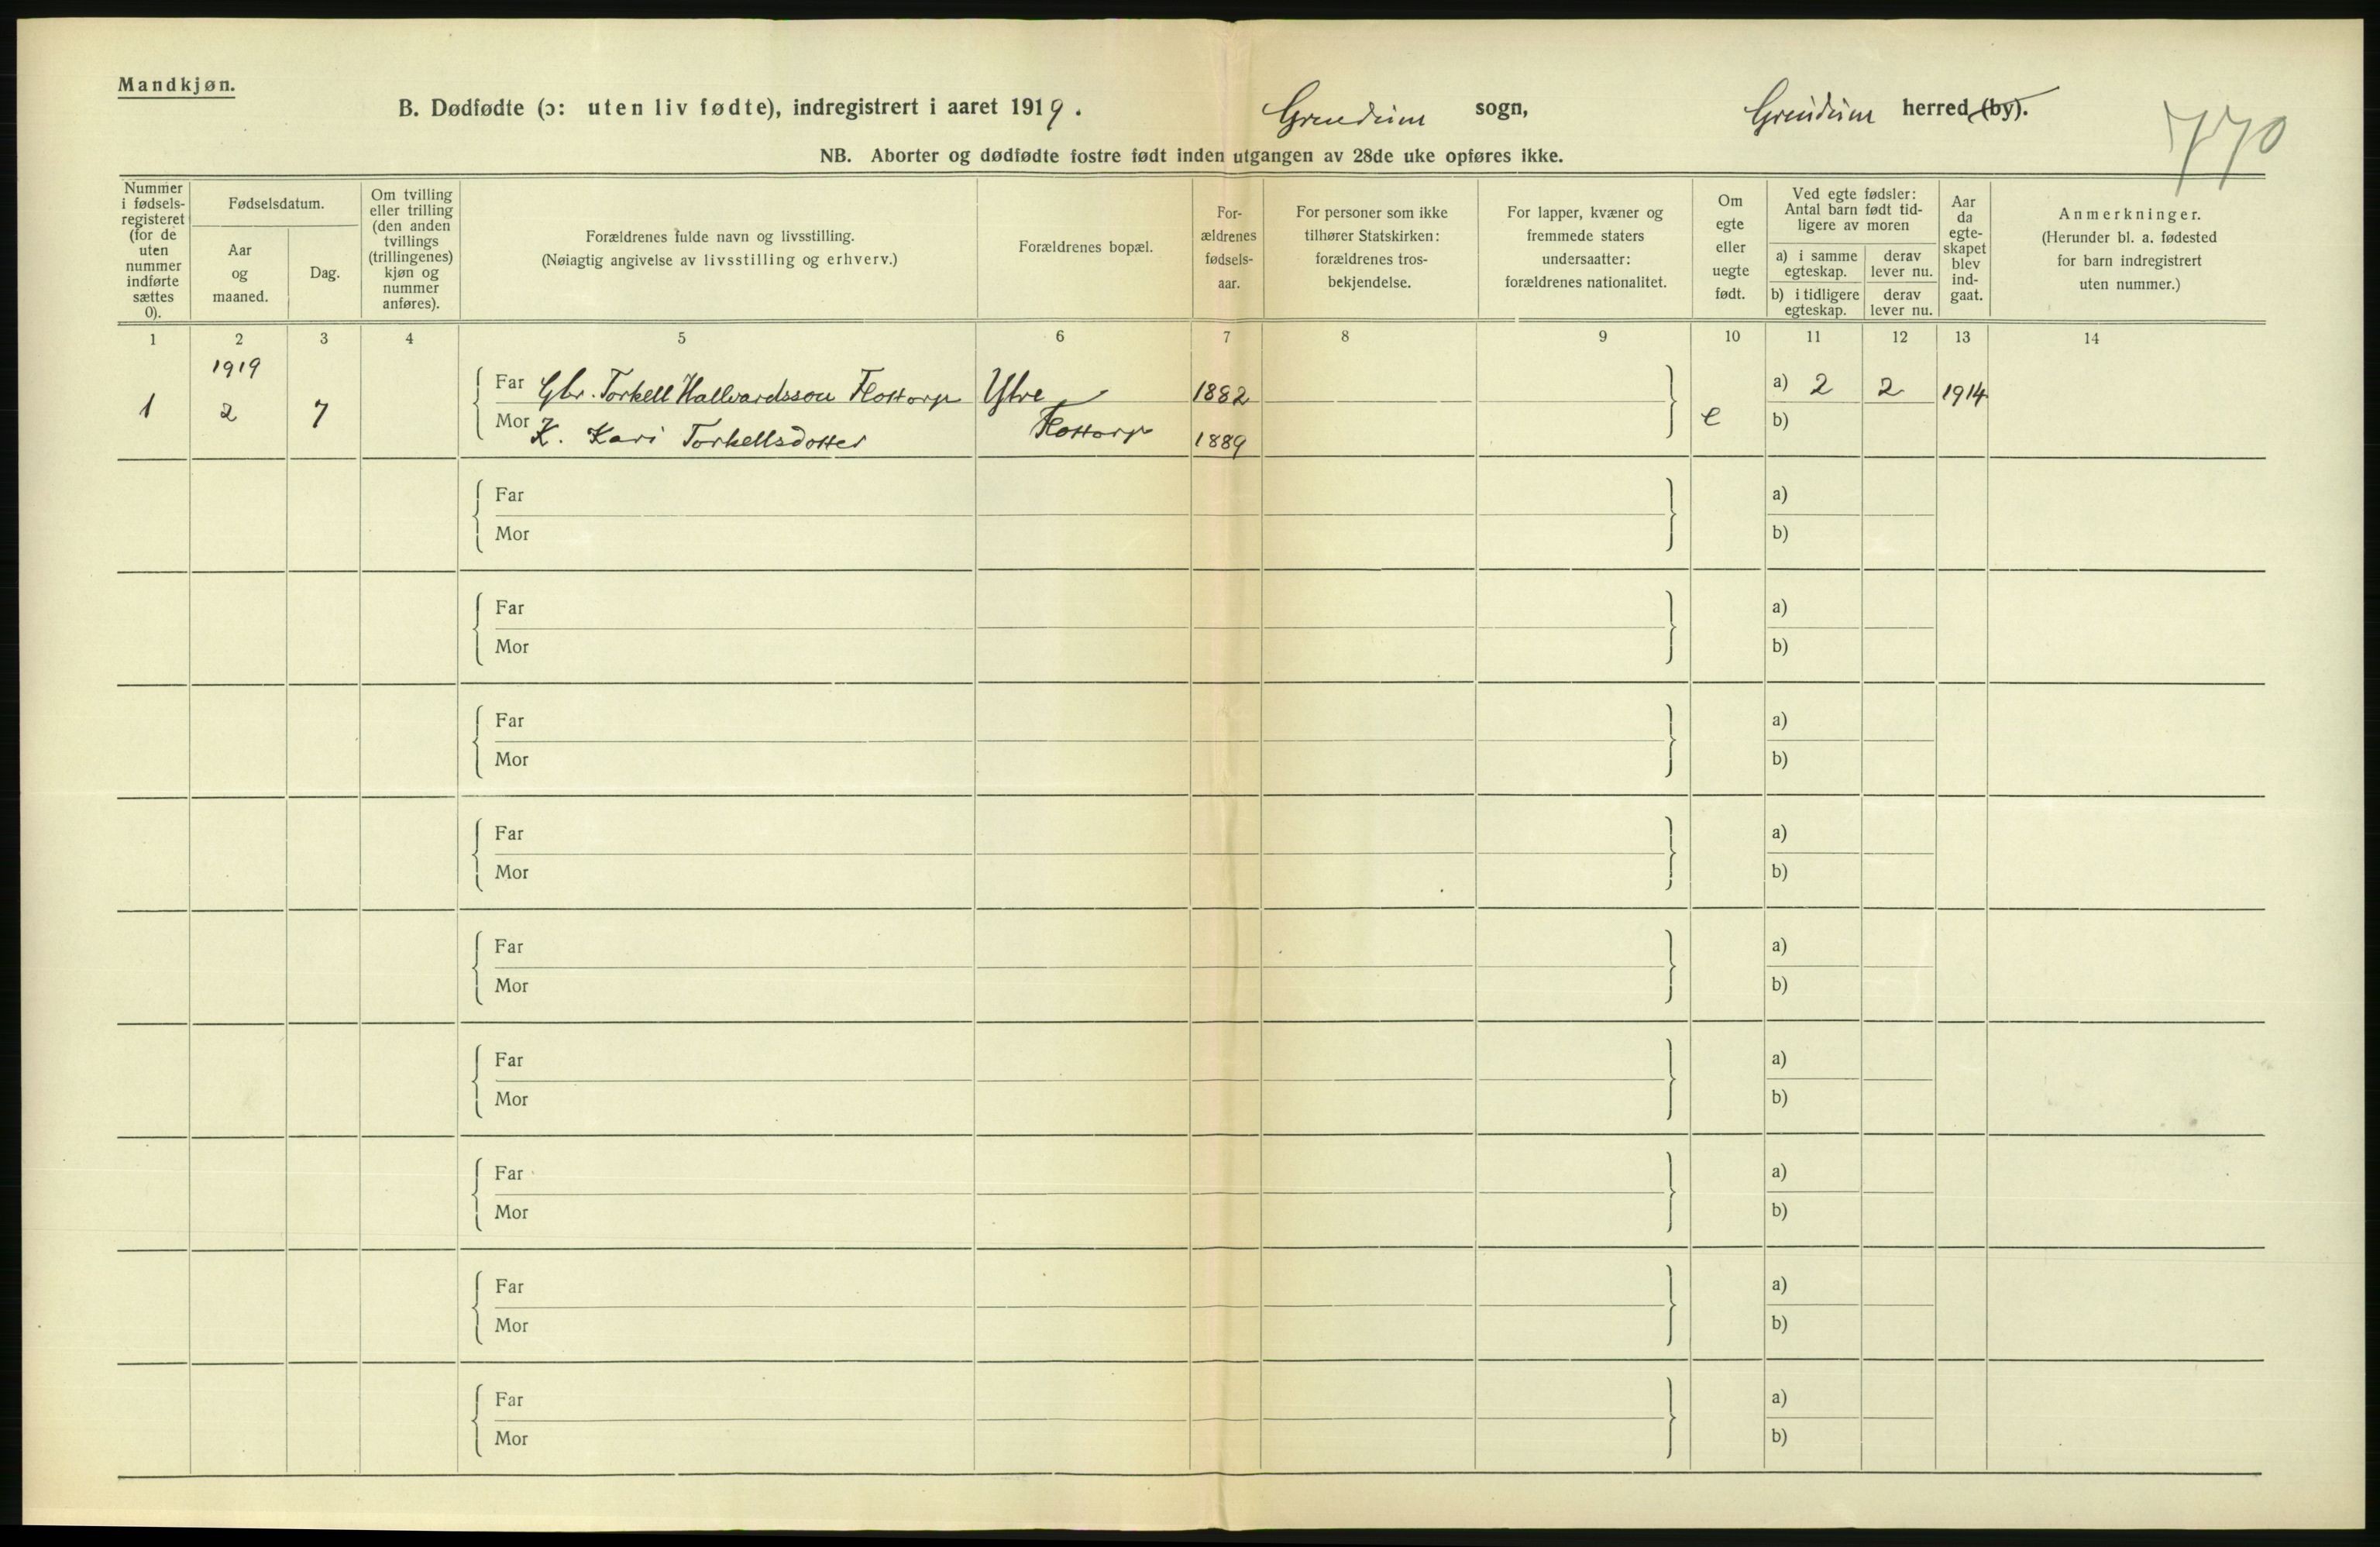 Mandkjøn.
B. Dødfødte (ɔ: uten liv fødte), indregistrert i aaret 1919. Grendum sogn, Greudum herred (by).
770
NB. Aborter og dødfødte fostre født inden utgangen av 28de uke opføres ikke.
Nummer
i fødsels-
registeret
(for de
uten
nummer
indførte
sættes
0).
Fødselsdatum.
Aar
og
maaned.
Dag.
Om tvilling
eller trilling
(den anden
tvillings
(trillingenes)
kjøn og
nummer
anføres).
Forældrenes fulde navn og livsstilling.
(Nøiagtig angivelse av livsstilling og erhverv.)
Forældrenes bopæl.
For-
ældrenes
fødsels-
aar.
For personer som ikke
tilhører Statskirken:
forældrenes tros-
bekjendelse.
For lapper, kvæner og
fremmede staters
undersaatter:
forældrenes nationalitet.
Om
egte
eller
uegte
født.
Ved egte fødsler:
Antal barn født tid-
ligere av moren
a) i samme
egteskap.
derav
lever nu.
b) i tidligere
egteskap.
derav
lever nu.
Aar
da
egte-
skapet
blev
ind-
gaat.
Anmerkninger.
(Herunder bl. a. fødested
for barn indregistrert
uten nummer.)
1 2 3 4 5 6 7 8 9 10 11 12 13 14
1919
1 2 7
Far Gbr. Torkell Hallvardsson Flottorp Ytre 1882 a) 2 2 1914
Mor K. Kari Torkellsdotter Flottorp 1889 e b)
Far a)
Mor b)
Far a)
Mor b)
Far a)
Mor b)
Far a)
Mor b)
Far a)
Mor b)
Far a)
Mor b)
Far a)
Mor b)
Far a)
Mor b)
Far a)
Mor b)